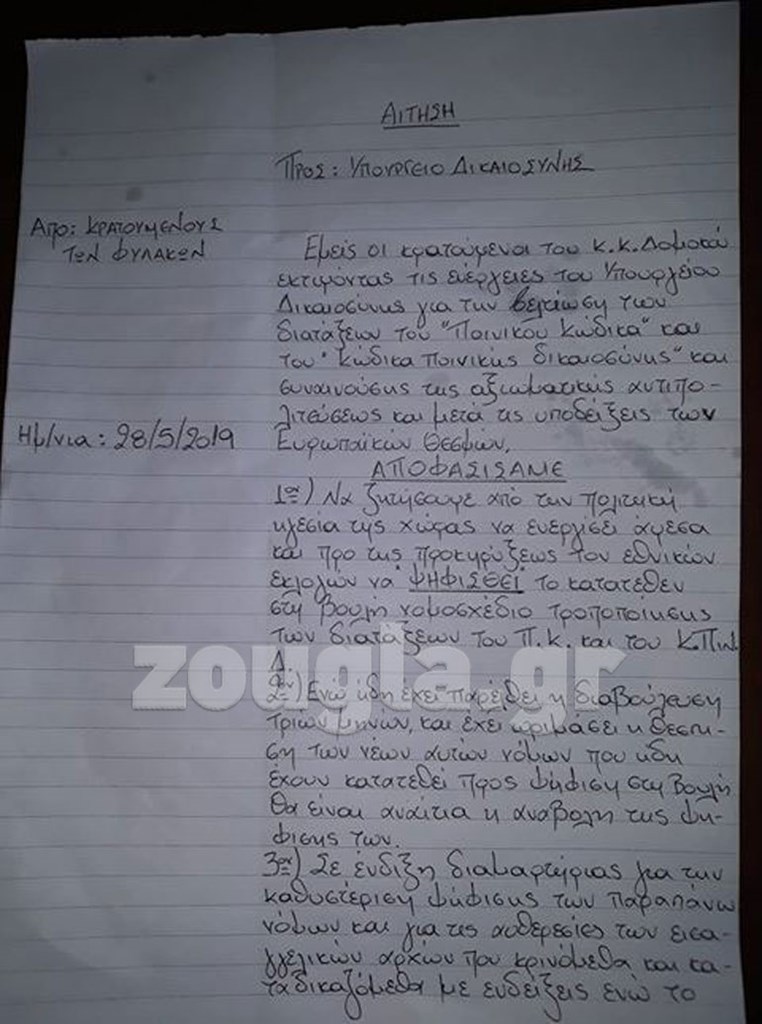 ΑΙΤΗΣΗ
ΠΡΟΣ: ΥΠΟΥΡΓΕΙΟ ΔΙΚΑΙΟΣΥΝΗΣ
ΑΠΟ: ΚΡΑΤΟΥΜΕΝΟΥΣ
ΤΩΝ ΦΥΛΑΚΩΝ
Εμείς οι κρατούμενοι του Κ.Κ. Δομοκού
εκτιμόντας τις ενέργειες του Υπουργείου
Δικαιοσύνης για την βελτίωση των
διατάξεων του "Ποινικού Κώδικα" και
του "Κώδικα Ποινικής δικαιοσύνης" και
συναινούσης της αξιωματικής αντιπο-
λιτεύσεως και μετά τις υποδείξεις των
Ευρωπαϊκών Θεσμών.
Ημ/νια: 28/5/2019
ΑΠΟΦΑΣΙΣΑΜΕ
1ον) Να ζητήσουμε από την πολιτική
ηγεσία της χώρας να ενεργίσει άμεσα
και προ της προκηρύξεως τον εθνικών
εκλογών να "ΨΗΦΙΣΘΕΙ" το κατατεθέν
στη Βουλή νομοσχέδιο τροποποίησης
των διατάξεων του Π.Κ. και του Κ.Ποιν.
Δ.
2ον) Ενώ ήδη έχει παρέλθει η διαβούλευση
τριών μηνών, και έχει ωριμάσει η θέσπι-
ση των νέων αυτών νόμων που ήδη
έχουν κατατεθεί προς ψήφιση στη Βουλή
θα είναι αναίτια η αναβολή της ψή-
φισης των.
3ον) Σε ένδιξη διαμαρτυρίας για την
καθυστέριση ψήφισης των παραπάνω
νόμων και για τις αυθερεσίες των εισα-
γγελικών αρχών που κρινόμεθα και κα-
ταδικαζόμεθα με ενδείξεις ενώ το
zougla.gr